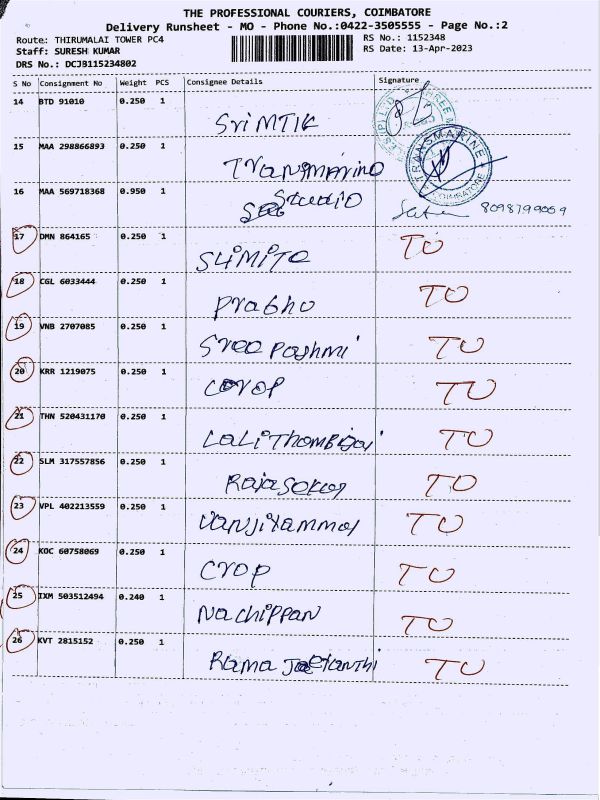 THE PROFESSIONAL COURIERS, COIMBATORE
Delivery Runsheet - MO - Phone No.:0422-3505555 - Page No.:2
Route: THIRUMALAI TOWER PC4 RS No.: 1152348
Staff: SURESH KUMAR RS Date: 13-Apr-2023
DRS No.: DCJB115234802
S No Consignment No Weight PCS Consignee Details Signature
14 BTD 91010 0.250 1
Sri MTIK
15 MAA 298866893 0.250 1
Transmarino
TRANSMARINE
COIMBATORE
16 MAA 569718368 0.950 1
Studio
8098799009
17 DMN 864165 0.250 1
SLIMITE TO
18 CGL 6033444 0.250 1
Prabhu TO
19 VNB 2707085 0.250 1
Sree Pashmi TO
20 KRR 1219075 0.250 1
COVOP TO
21 THN 520431170 0.250 1
LaLiThambigai TO
22 SLM 317557856 0.250 1
Rajasekar TO
23 VPL 402213559 0.250 1
Vanjiyammal TO
24 KOC 60758069 0.250 1
Crop TO
25 IXM 503512494 0.240 1
Nachippan TO
26 KVT 2815152 0.250 1
Rama TO